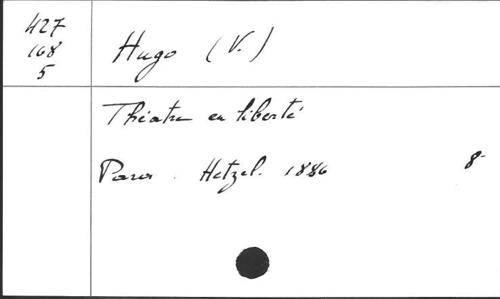 427
168
5
Hugo (V.)
Théatre en liberté
Paris. Hetzel. 1886 8°